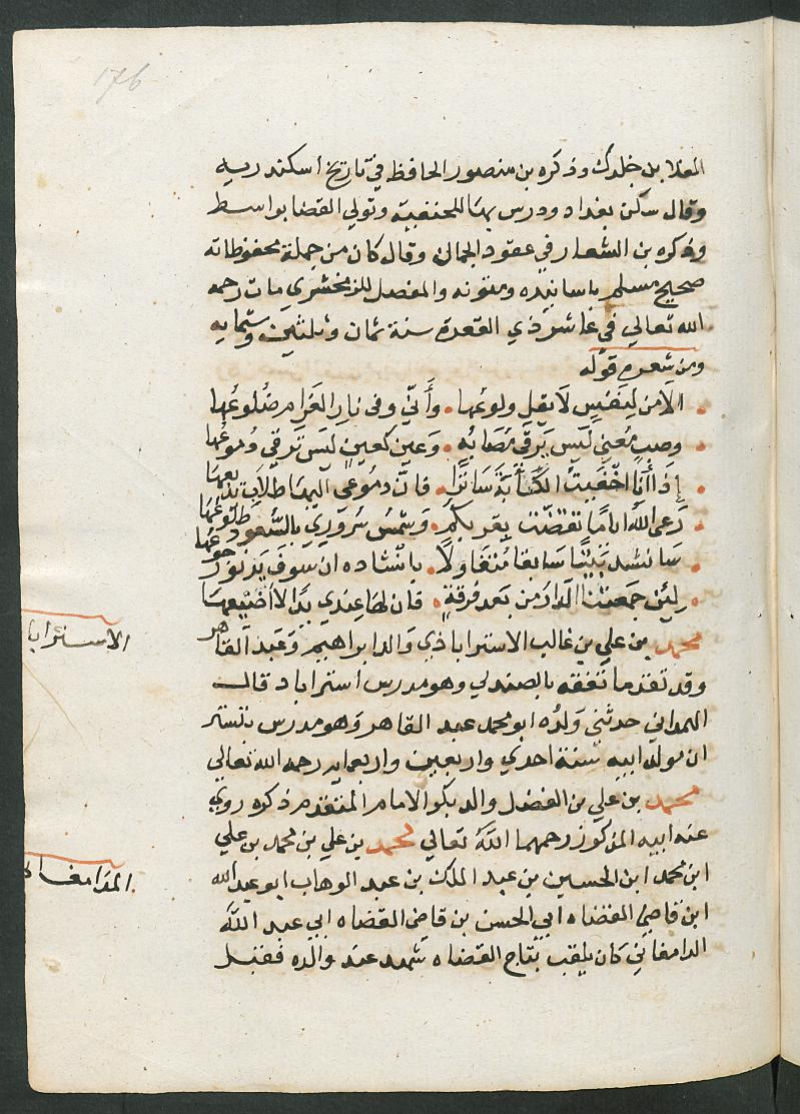 176
العلا بن خلدك وذكره بن منصور الحافظ في تاريخ اسكندريه
وقال سكن بغداد ودرس بها للحنفية وتولي القضا بواسط
وذكره بن الشعار في عقود الجمان وقال كان من جملة محفوظاته
صحيح مسلم باسانيده ومتونه والمفصل للزمخشري مات رحمه
الله تعالي في عاشر ذي القعدة سنة ثمان وثلثين وستمايه
ومن شعره قوله
الا من لنفس لا يقل ولوعها . وأني وفى نار الغرام ضلوعها
وصب معنى ليس يرقى مصابه . وعين كعين ليس ترقي دموعها
إذا أنا اخفيت الكآبة ساترا . فان دموعي اليها طلاب تذيعها
رعى الله اياما تقضت بقربكم . وشمس سروري بالسعود طلوعها
سانشد بيتا سابقا متفاولا . بانشاده ان سوف يدنو رجوعها
لئن جمعتنا الدار من بعد فرقة . فان لها عندي يدا لا أضيعها
محمد بن علي بن غالب الاستراباذي والد ابراهيم وعبد القاهر
وقد تقدما تفقه بالصندلي وهو مدرس استراباد قال
الهمداني حدثني ولده ابو محمد عبد القاهر وهو مدرس بتستر
ان مولد ابيه سنة احدي واربعين واربعمايه رحمه الله تعالي
محمد بن علي بن الفضل والد بكر الامام المتقدم ذكره روي
عنه ابيه المذكور رحمهما الله تعالي محمد بن علي بن محمد بن علي
ابن محمد ابن الحسين بن عبد الملك بن عبد الوهاب ابو عبد الله
ابن قاضي القضاه ابي الحسن بن قاضي القضاه ابي عبد الله
الدامغاني كان يلقب بتاج القضاه شهد عند والده فقبل
الاستراباذ
الدامغا